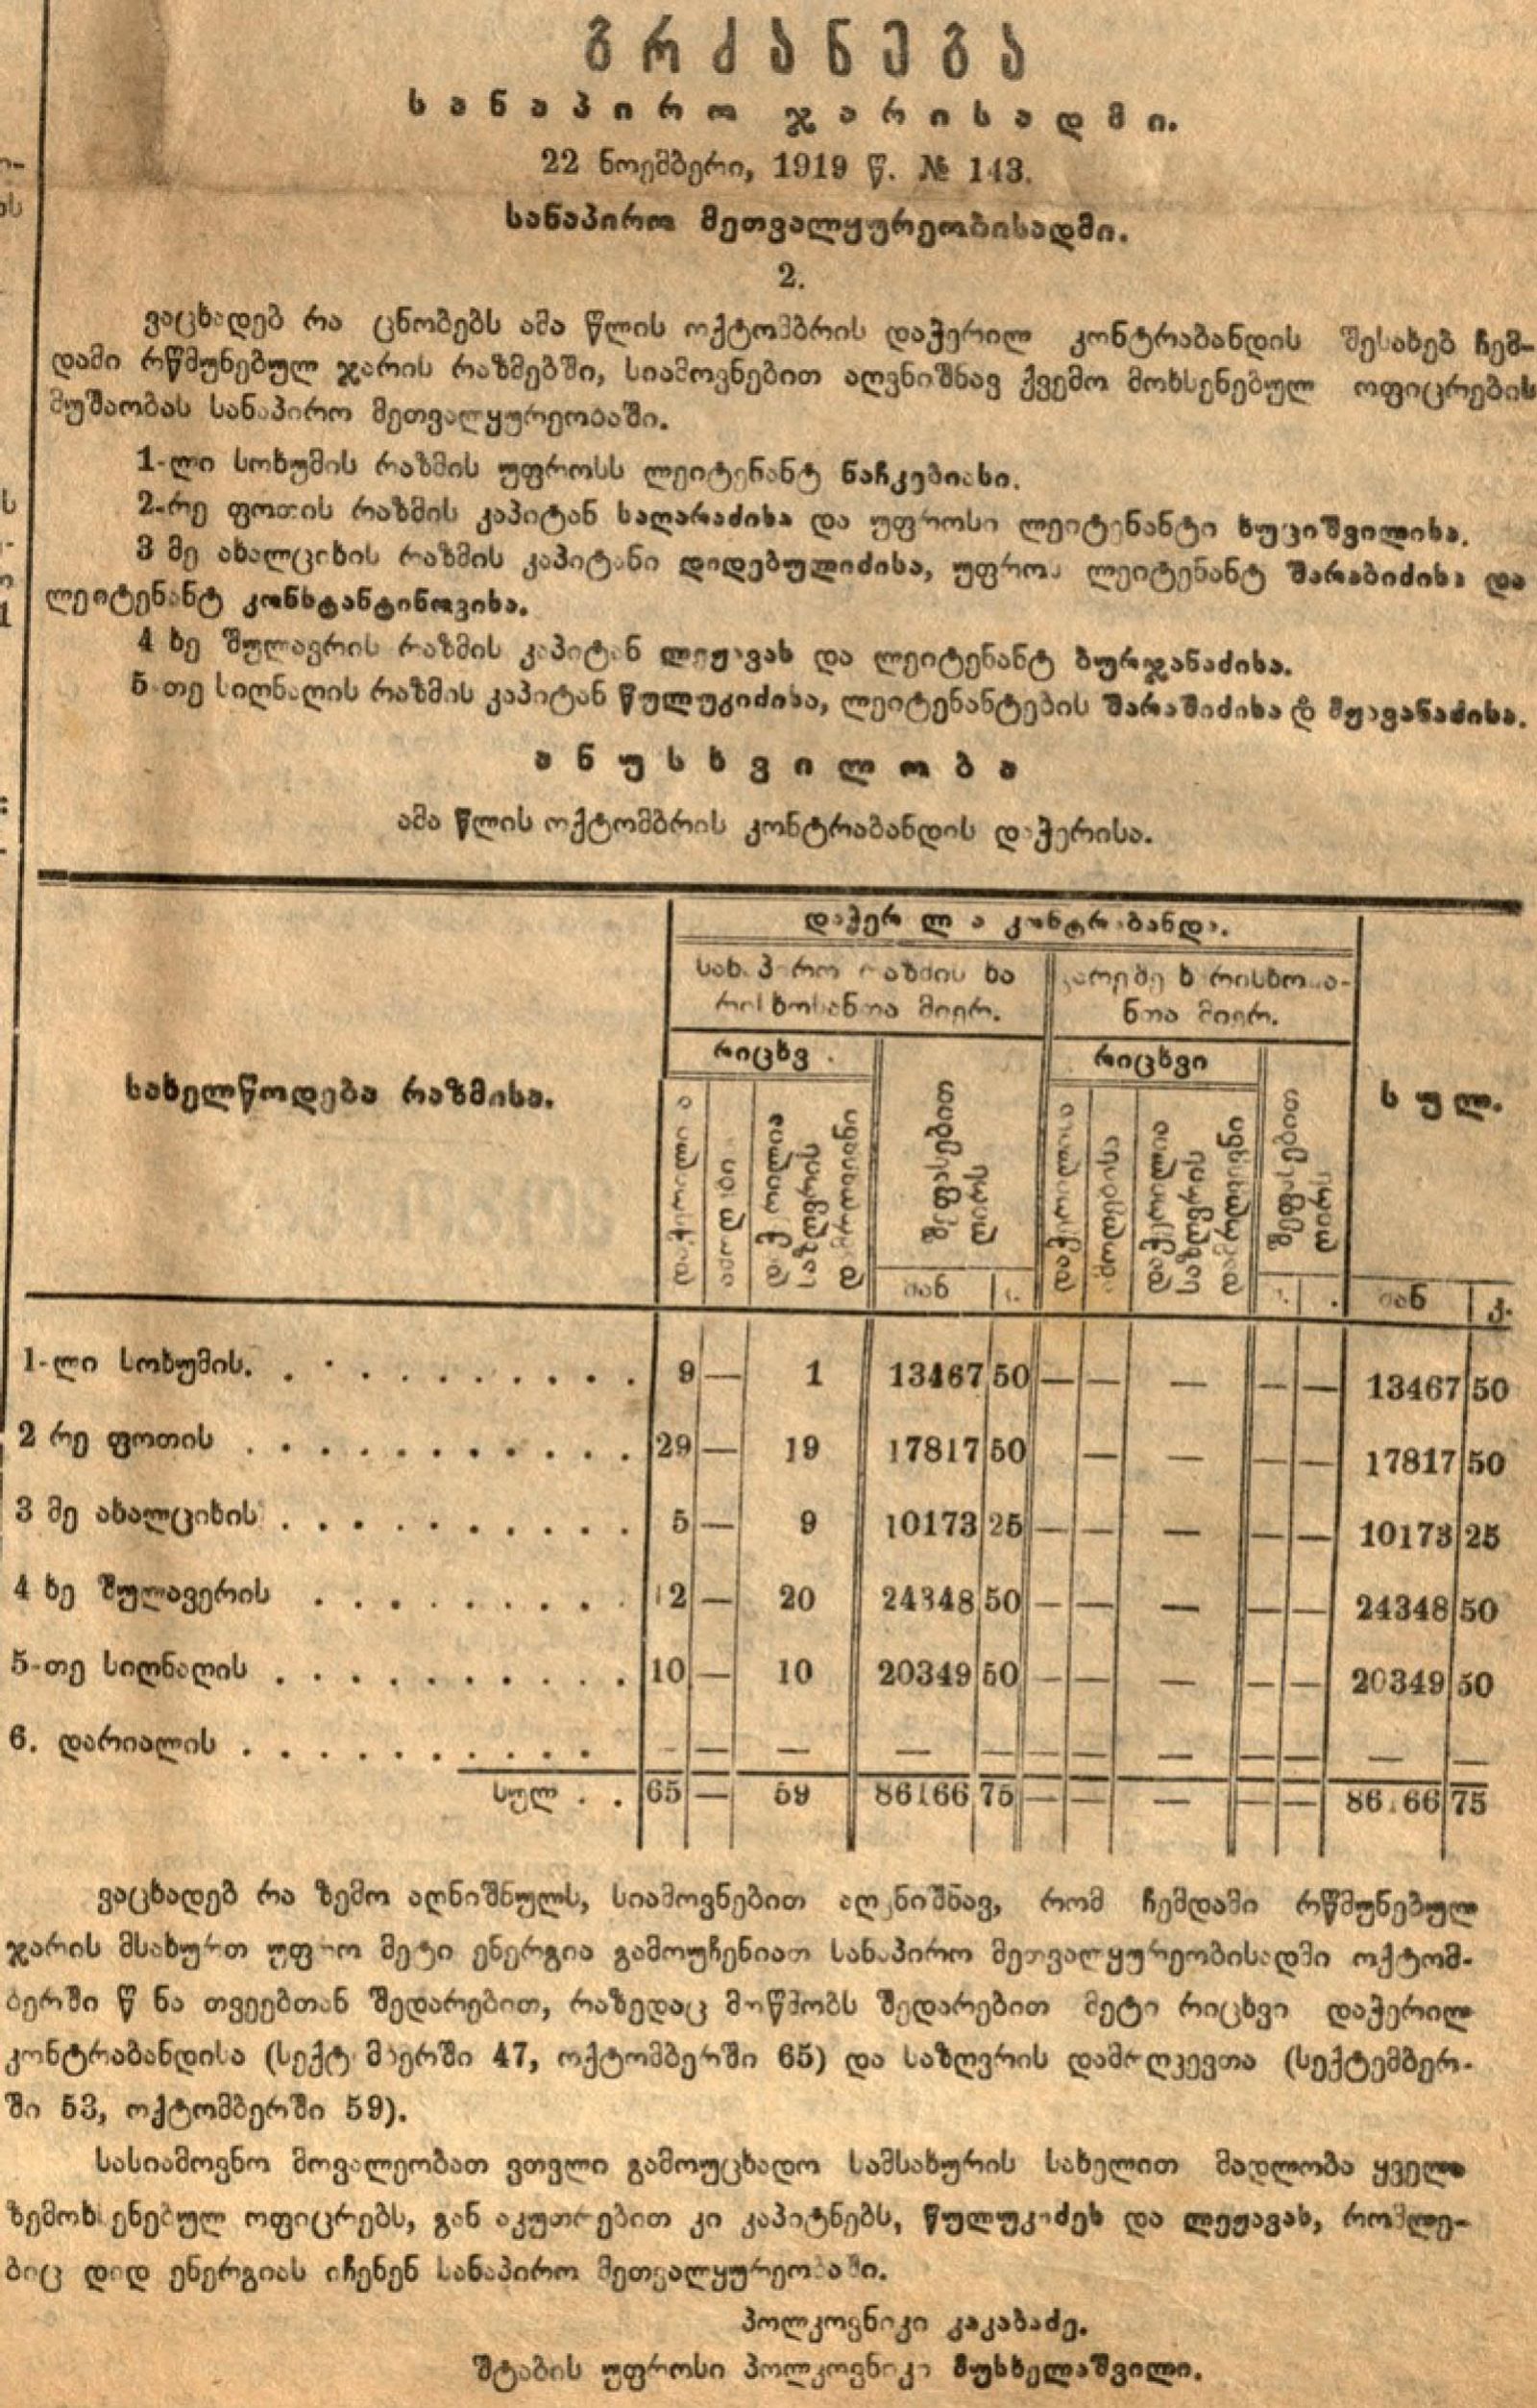 ბრძანება
სანაპირო ჯარისადმი.
22 ნოემბერი, 1919 წ. № 143.
სანაპირო მეთვალყურეობისადმი.
2.
ვაცხადებ რა ცნობებს ამა წლის ოქტომბრის დაჭერილ კონტრაბანდის შესახებ ჩემ-
დამი რწმუნებულ ჯარის რაზმებში, სიამოვნებით აღვნიშნავ ქვემო მოხსენებულ ოფიცრების
მუშაობას სანაპირო მეთვალყურეობაში.
1-ლი სოხუმის რაზმის უფროსს ლეიტენანტ ნაჩკებიასი.
2-რე ფოთის რაზმის კაპიტან საღარაძისა და უფროსი ლეიტენანტი ხუციშვილისა.
3 მე ახალციხის რაზმის კაპიტანი დიდებულიძისა, უფროს ლეიტენანტ შარაბიძისა და
ლეიტენანტ კონსტანტინოვისა.
4 ხე შულავრის რაზმის კაპიტან ლეჟავას და ლეიტენანტ ბურჯანაძისა.
5-თე სიღნაღის რაზმის კაპიტან წულუკიძისა, ლეიტენანტების შარაშიძისა და მჟავანაძისა.
ანუსხვილობა
ამა წლის ოქტომბრის კონტრაბანდის დაჭერისა.
დაჭერილა კონტრაბანდა.
სან. პირო რაზმის ხა
რისხოსანთა მიერ.
გარეშე ხარისხოსა-
ნთა მიერ.
სახელწოდება რაზმისა.
რიცხვი
რიცხვი
სულ.
დაჭერილია
დაჭერილია
საზღვრის
დამრღვევნი
შეფასებით
ღირს
დაჭერილია
დაჭერილია
საზღვრის
დამრღვევნი
შეფასებით
ღირს
მან
მან კ.
1-ლი სოხუმის. . . . . . . . . . 9 — 1 13467 50 — — — — — 13467 50
2 რე ფოთის . . . . . . . . . . . 29 — 19 17817 50 — — — — 17817 50
3 მე ახალციხის . . . . . . . . . . 5 — 9 10173 25 — — — — — 10173 25
4 ხე შულავერის . . . . . . . . . 12 — 20 24348 50 — — — — — 24348 50
5-თე სიღნაღის . . . . . . . . . . 10 — 10 20349 50 — — — — — 20349 50
6. დარიალის . . . . . . . . . . - — — — — — — — — — — —
სულ . . 65 — 59 86166 75 — — — — — 86166 75
ვაცხადებ რა ზემო აღნიშნულს, სიამოვნებით აღვნიშნავ, რომ ჩემდამი რწმუნებულ
ჯარის მსახურთ უფრო მეტი ენერგია გამოუჩენიათ სანაპირო მეთვალყურეობისადმი ოქტომ-
ბერში წ ნა თვეებთან შედარებით, რაზედაც მოწმობს შედარებით მეტი რიცხვი დაჭერილ
კონტრაბანდისა (სექტემბერში 47, ოქტომბერში 65) და საზღვრის დამრღვევთა (სექტემბერ-
ში 53, ოქტომბერში 59).
სასიამოვნო მოვალეობათ ვთვლი გამოუცხადო სამსახურის სახელით მადლობა ყველა
ზემოხსენებულ ოფიცრებს, განსაკუთრებით კი კაპიტნებს, წულუკიძეს და ლეჟავას, რომლე-
ბიც დიდ ენერგიას იჩენენ სანაპირო მეთვალყურეობაში.
პოლკოვნიკი კაკაბაძე.
შტაბის უფროსი პოლკოვნიკი მუსხელაშვილი.